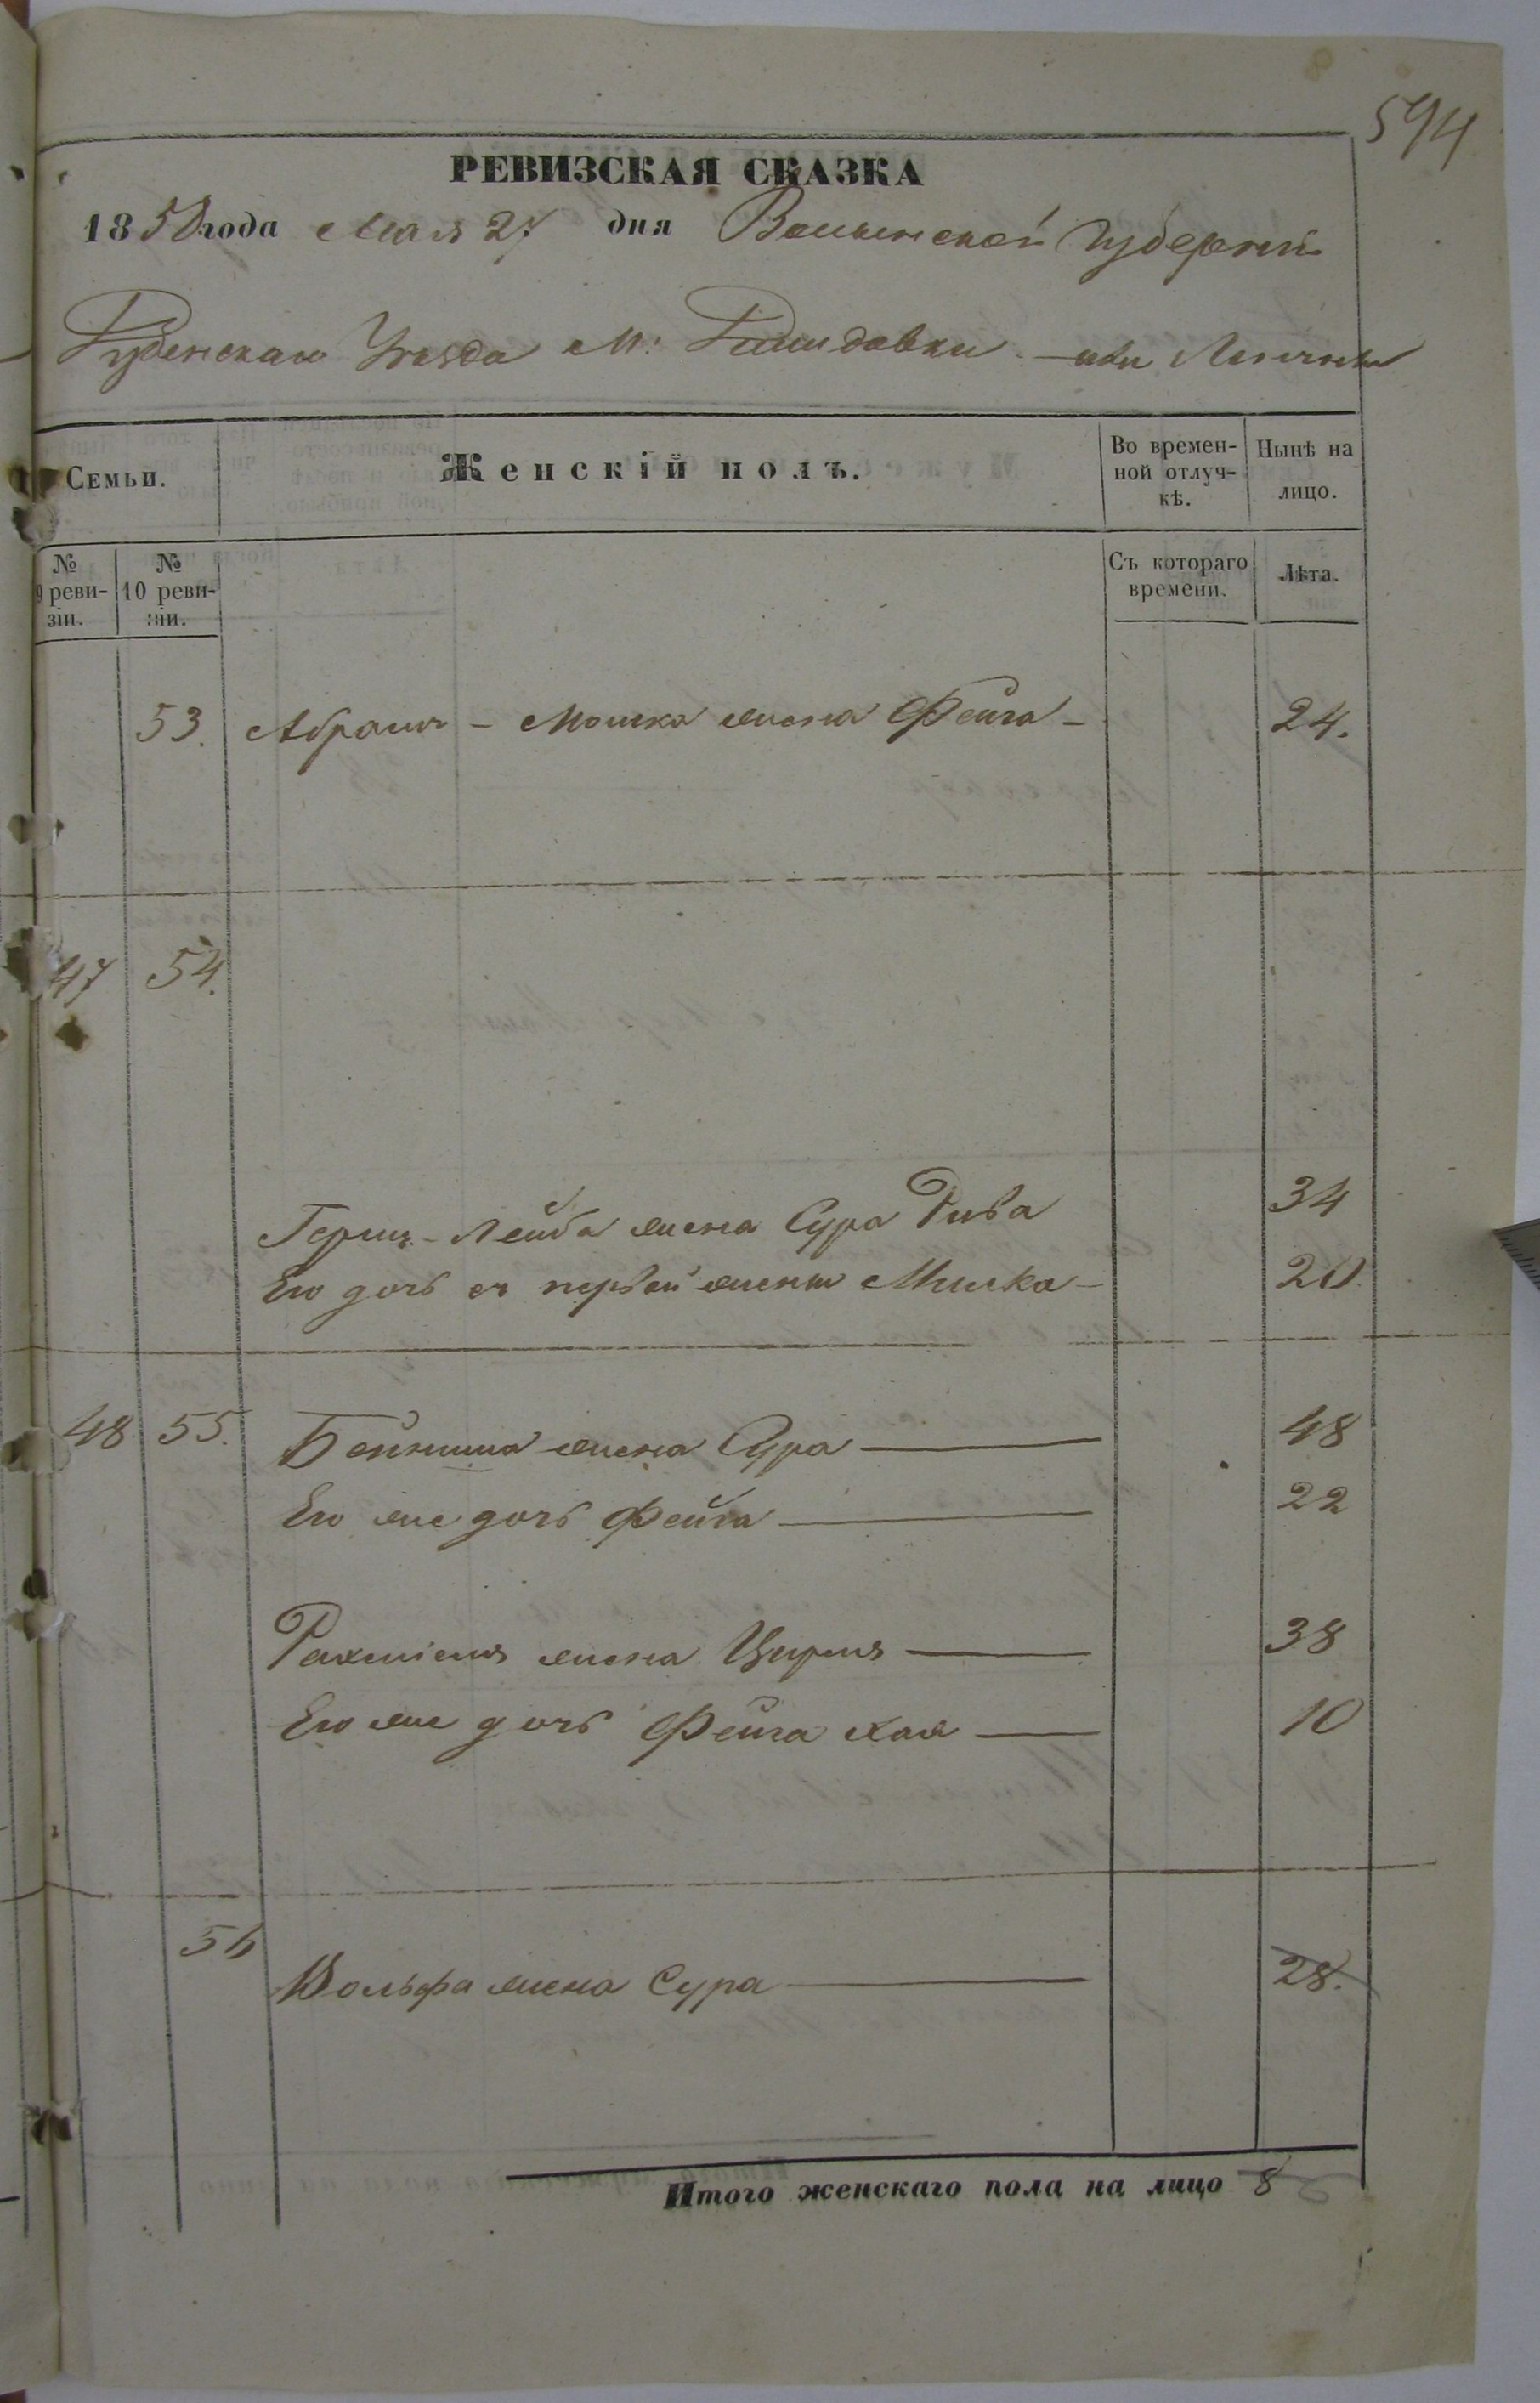 594
РЕВИЗСКАЯ СКАЗКА
1858 года Мая 27 дня Волынской Губернии
Ровенскаго Уезда М:
Семьи.
Женскій полъ.
Во времен-
ной отлуч-
кѣ.
Нынѣ на
лицо.
№
9 реви-
зіи.
№
10 реви-
зіи.
Съ котораго
времени.
Лѣта.
53. Абрамъ - Мошка жена Фейга - 24.
47 54.
Гершъ - Лейба жена Сура Рива 34
Его дочь съ первой жены - 20.
48 55. Бейниша жена Сура — 48
Его же дочь Фейга — 22
жена Цирля — 38
Его же дочь Фейга Хая — 10
56
Вольфа жена Сура — 28.
Итого женскаго пола на лицо 8